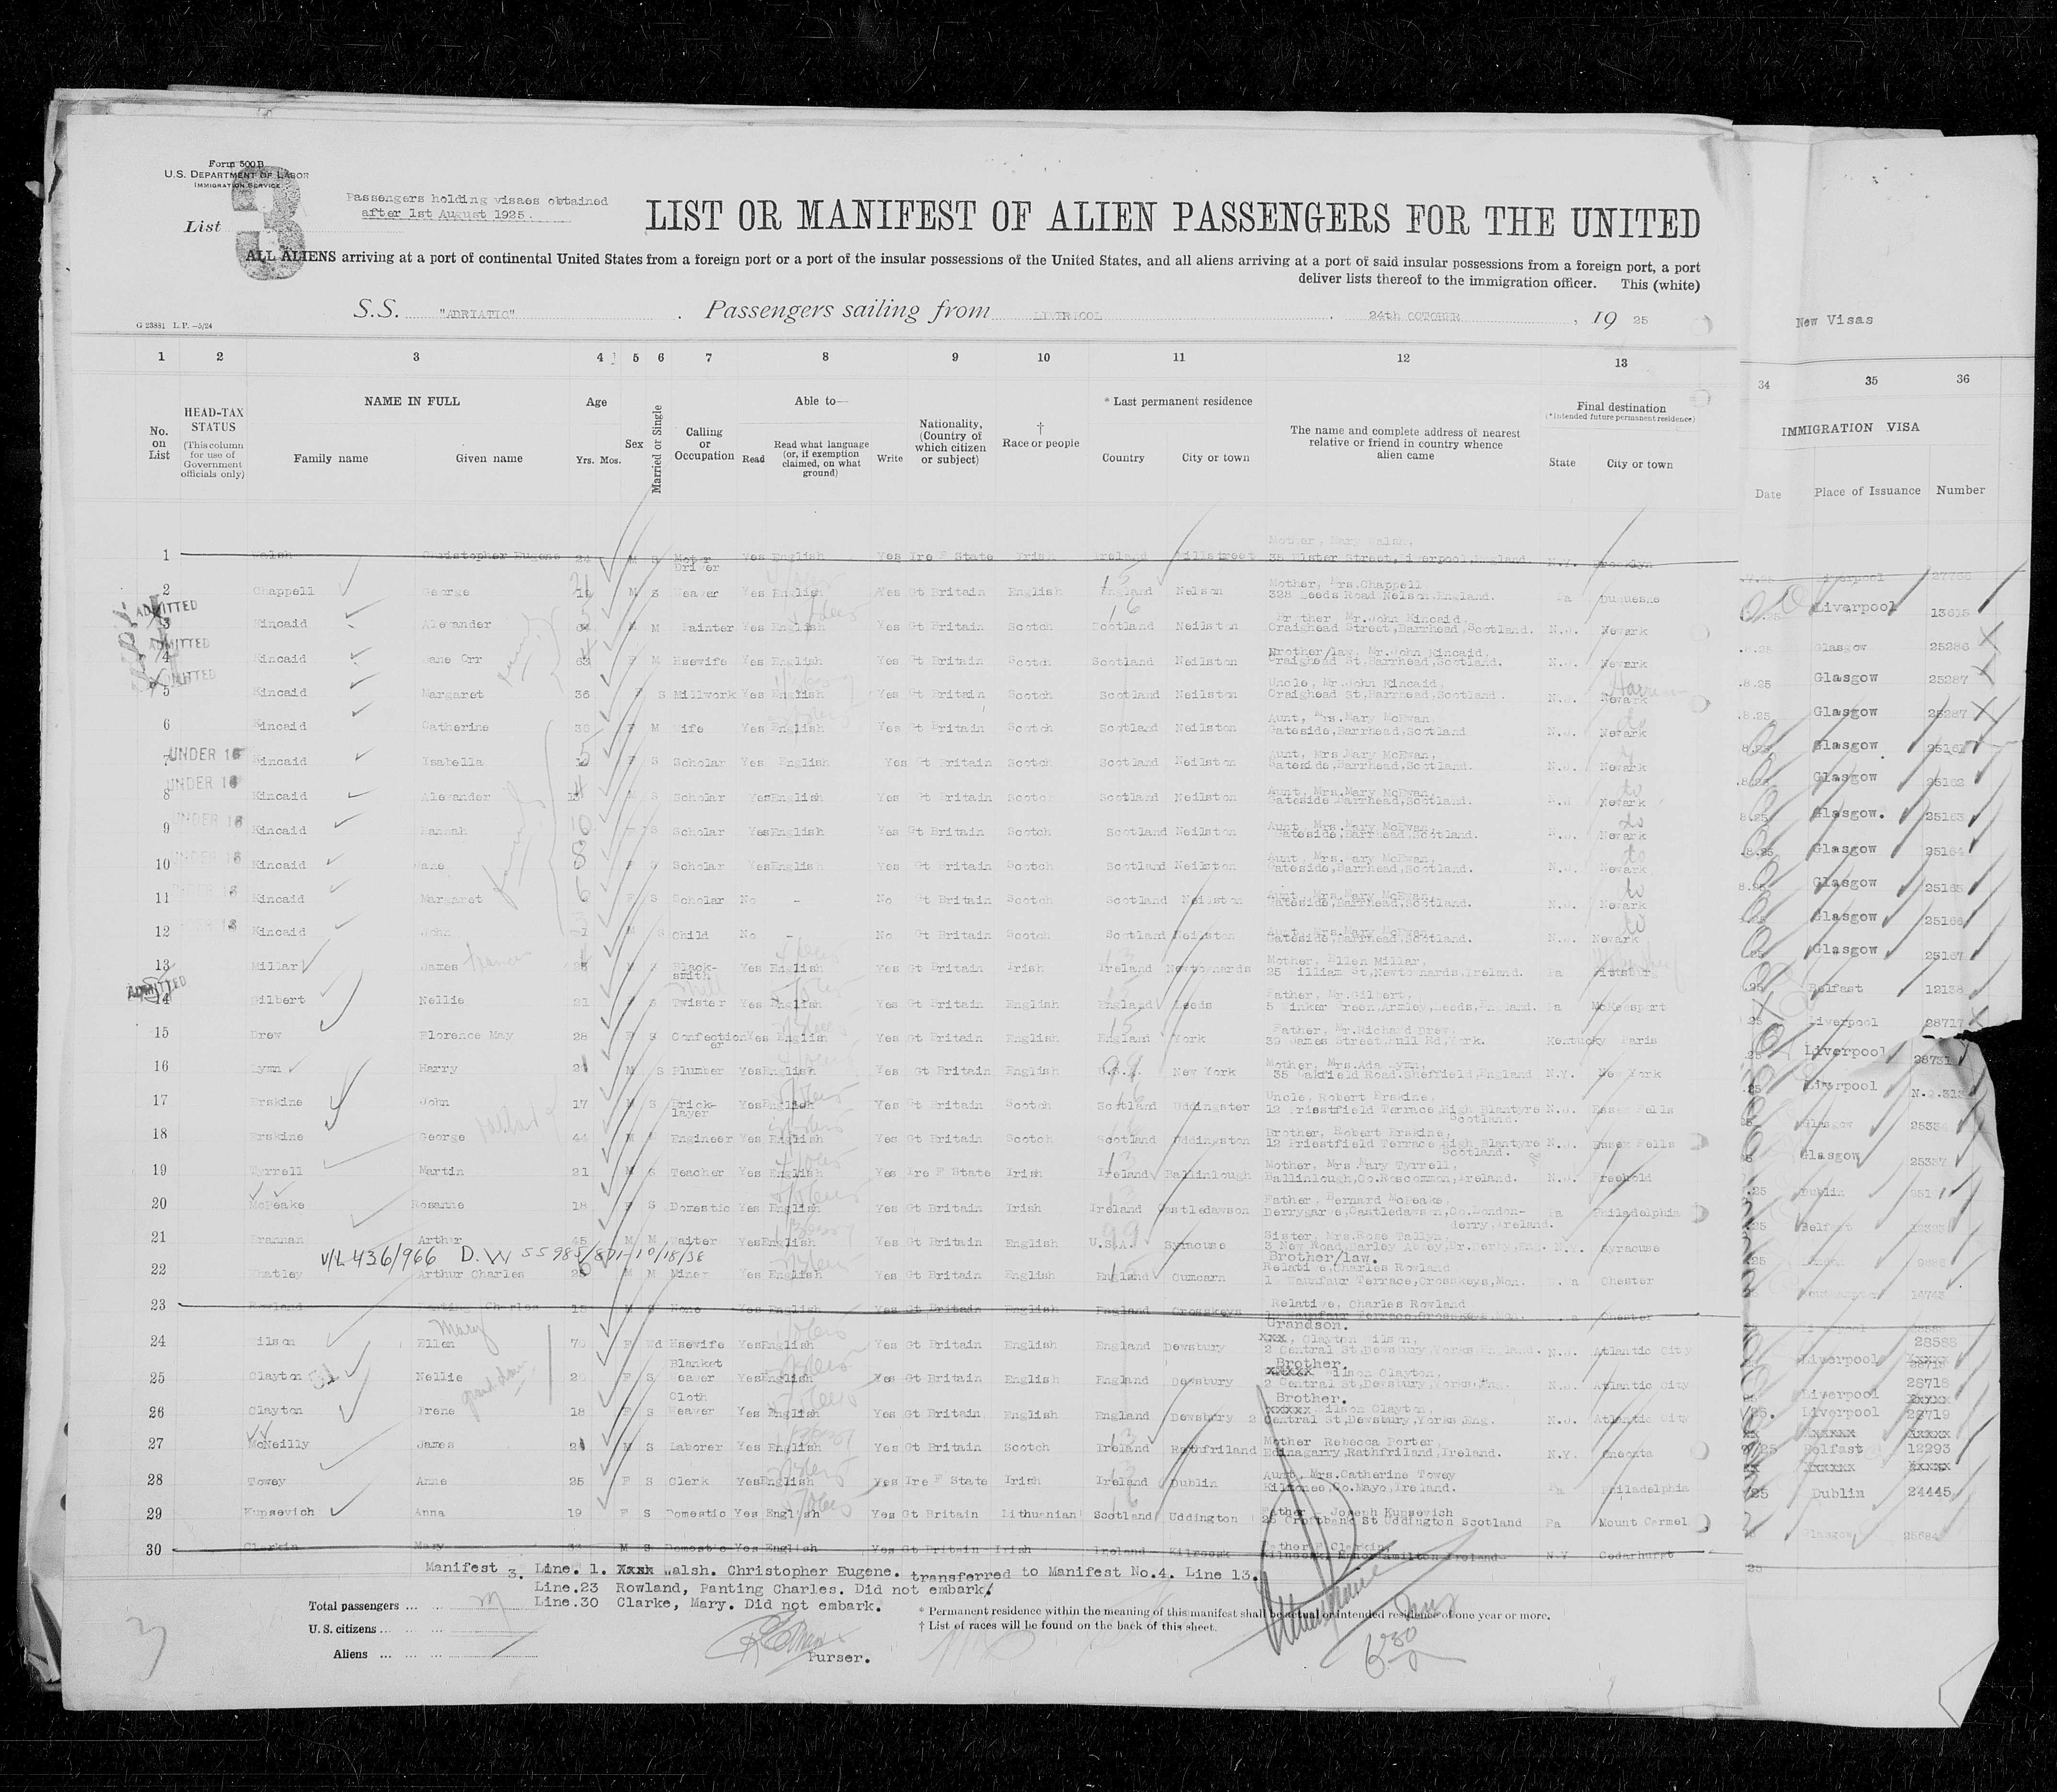 Form 500 B
U.S. DEPARTMENT OF LABOR
IMMIGRATION SERVICE
List 3
Passengers holding visaes obtained
after 1st August 1925.
LIST OR MANIFEST OF ALIEN PASSENGERS FOR THE UNITED
ALL ALIENS arriving at a port of continental United States from a foreign port or a port of the insular possessions of the United States, and all aliens arriving at a port of said insular possessions from a foreign port, a port
deliver lists thereof to the immigration officer. This (white)
S.S. "ADRIATIC" . Passengers sailing from LIVERPOOL , 24th OCTOBER , 19 25
G 23881 L.P.—5/24
New Visas
1 2 3 4 5 6 7 8 9 10 11 12 13 34 35 36
No. on List
HEAD-TAX STATUS (This column for use of Government officials only)
NAME IN FULL Family name Given name
Age Yrs. Mos.
Sex
Married or Single
Calling or Occupation
Able to— Read Read what language (or, if exemption claimed, on what ground) Write
Nationality, (Country of which citizen or subject)
† Race or people
* Last permanent residence Country City or town
The name and complete address of nearest relative or friend in country whence alien came
Final destination (*Intended future permanent residence) State City or town
IMMIGRATION VISA Date Place of Issuance Number
1 Walsh Christopher Eugene 24 M S Motor Driver Yes English Yes Ire F State Irish Ireland Millstreet Mother, Mary Walsh, 35 Ulster Street, Liverpool, England N.Y. Brooklyn Liverpool
2 Chappell George M S Weaver Yes English Yes Gt Britain English England Nelson Mother, Mrs.Chappell 328 Leeds Road Nelson,England. Pa Duquesne Liverpool 13615
ADMITTED
3 Kincaid Alexander M M Painter Yes English Yes Gt Britain Scotch Scotland Neilston Brother, Mr.John Kincaid, Craighead Street,Barrhead,Scotland. N.J. Newark Glasgow 25286
ADMITTED
4 Kincaid Jane Orr 63 F M Hsewife Yes English Yes Gt Britain Scotch Scotland Neilston Brother/law, Mr.John Kincaid, Craighead St,Barrhead,Scotland. N.J. Newark Glasgow 25287
ADMITTED
5 Kincaid Margaret 36 F S Millwork Yes English Yes Gt Britain Scotch Scotland Neilston Uncle, Mr.John Kincaid, Craighead St,Barrhead,Scotland. N.J. Newark Harrison Glasgow 25287
6 Kincaid Catherine F M Wife Yes English Yes Gt Britain Scotch Scotland Neilston Aunt, Mrs.Mary McEwan Gateside,Barrhead,Scotland N.J. Newark do Glasgow 25161
UNDER 16
7 Kincaid Isabella F S Scholar Yes English Yes Gt Britain Scotch Scotland Neilston Aunt, Mrs Mary McEwan, Gateside,Barrhead,Scotland. N.J. Newark Glasgow 25162
UNDER 16
8 Kincaid Alexander M S Scholar Yes English Yes Gt Britain Scotch Scotland Neilston Aunt, Mrs.Mary McEwan, Gateside Barrhead,Scotland. N.J Newark do Glasgow. 25163
UNDER 16
9 Kincaid Hannah 10 F S Scholar Yes English Yes Gt Britain Scotch Scotland Neilston Aunt, Mrs.Mary McEwan, Gateside,Barrhead,Scotland. N.J. Newark do Glasgow 25164
UNDER 16
10 Kincaid Jane 8 F S Scholar Yes English Yes Gt Britain Scotch Scotland Neilston Aunt, Mrs.Mary McEwan, Gateside,Barrhead,Scotland. N.J. Newark do Glasgow 25165
UNDER 16
11 Kincaid Margaret 6 F S Scholar No - No Gt Britain Scotch Scotland Neilston Aunt, Mrs.Mary McEwan, Gateside,Barrhead,Scotland. N.J. Newark do Glasgow 25166
UNDER 16
12 Kincaid John M S Child No - No Gt Britain Scotch Scotland Neilston Aunt, Mrs.Mary McEwan, Gateside,Barrhead,Scotland. N.J. Newark do Glasgow 25167
13 Millar James Francis M Black-smith Yes English Yes Gt Britain Irish Ireland Newtownards Mother, Ellen Millar, 25 William St,Newtownards,Ireland. Pa Pittsburg Belfast 12138
ADMITTED
14 Gilbert Nellie 21 F S Twister Yes English Yes Gt Britain English England Leeds Father, Mr.Gilbert, Armley,Leeds,England. Pa McKeesport Liverpool 28717
15 Drew Florence May 28 F S Confectioner Yes English Yes Gt Britain English England York Father, Mr.Richard Drew, 39 James Street,Hull Rd,York. Kentucky Paris Liverpool 28731
16 Lynn Harry 21 M S Plumber Yes English Yes Gt Britain English U.S.A. New York Mother, Mrs.Ada Lynn, 35 Oakfield Road.Sheffield,England N.Y. New York Liverpool N.Q.313
17 Erskine John 17 M S Brick-layer Yes English Yes Gt Britain Scotch Scotland Uddingster Uncle, Robert Erskine, 12 Priestfield Terrace,High Blantyre Scotland. N.J. Essex Fells Glasgow
18 Erskine George 44 M Engineer Yes English Yes Gt Britain Scotch Scotland Uddingston Brother, Robert Erskine, 12 Priestfield Terrace High Blantyre Scotland. N.J. Essex Fells Glasgow 25337
19 Tyrrell Martin 21 M S Teacher Yes English Yes Ire F State Irish Ireland Ballinlough Mother, Mrs Mary Tyrrell, Ballinlough,Co.Roscommon,Ireland. N.J. Freehold Dublin
20 McPeake Rosanne 18 F S Domestic Yes English Yes Gt Britain Irish Ireland Castledawson Father, Bernard McPeake, Castledawson,Co.London-derry,Ireland. Pa Philadelphia Belfast
21 Brannan Arthur 45 M M Waiter Yes English Yes Gt Britain English U.S.A. Syracuse Sister, Mrs.Rose Tallyn, 3 New Road,Darley Abbey,Dr.Derby,Eng. N.Y. Syracuse London
V/L 436/966 D.W 55985/871-10/18/38
22 Whatley Arthur Charles M M Miner Yes English Yes Gt Britain English England Cumcarn Brother/law. Relative,Charles Rowland 1 Waunfaur Terrace,Crosskeys,Mon. Pa Chester Southampton
23 Rowland Panting Charles M S None Yes English Yes Gt Britain English England Crosskeys Relative, Charles Rowland 1 Waunfaur Terrace,Crosskeys,Mon. Chester
24 Wilson Ellen Mary 70 F Wd Hsewife Yes English Yes Gt Britain English England Dewsbury Grandson. xxx, Clayton Wilson, 2 Central St,Dewsbury,Yorks England. N.J. Atlantic City Liverpool 28588
25 Clayton Nellie F S Blanket Weaver Yes English Yes Gt Britain English England Dewsbury Brother. xxxxxx Wilson Clayton, 2 Central St,Dewsbury,Yorks,Eng. N.J. Atlantic City Liverpool 28718
26 Clayton Irene 18 F S Cloth Weaver Yes English Yes Gt Britain English England Dewsbury Brother. xxxxx Wilson Clayton, 2 Central St,Dewsbury,Yorks,Eng. N.J. Atlantic City Liverpool 28719
27 McNeilly James 21 M S Laborer Yes English Yes Gt Britain Scotch Ireland Rathfriland Mother Rebecca Porter, Edinagarry,Rathfriland,Ireland. N.Y. Oneonta Belfast 12293
28 Towey Anne 25 F S Clerk Yes English Yes Ire F State Irish Ireland Dublin Aunt, Mrs.Catherine Towey Kilmonee,Co.Mayo,Ireland. Pa Philadelphia Dublin 24445
29 Kupsevich Anna 19 F S Domestic Yes English Yes Gt Britain Lithuanian Scotland Uddington Father Joseph Kupsevich 25 Croftbank St Uddington Scotland Pa Mount Carmel Glasgow 25684
30 Clarkin Mary 33 M S Domestic Yes English Yes Gt Britain Irish Ireland Kilncock Father P Clarkin, Kilncock, Manorhamilton Ireland N.Y Cedarhurst
Manifest 3. Line. 1. Xxxx Walsh. Christopher Eugene. transferred to Manifest No.4. Line 13.
Line.23 Rowland, Panting Charles. Did not embark.
Line.30 Clarke, Mary. Did not embark.
Total passengers
U.S. citizens
Aliens
Purser.
* Permanent residence within the meaning of this manifest shall be actual or intended residence of one year or more.
† List of races will be found on the back of this sheet.
3